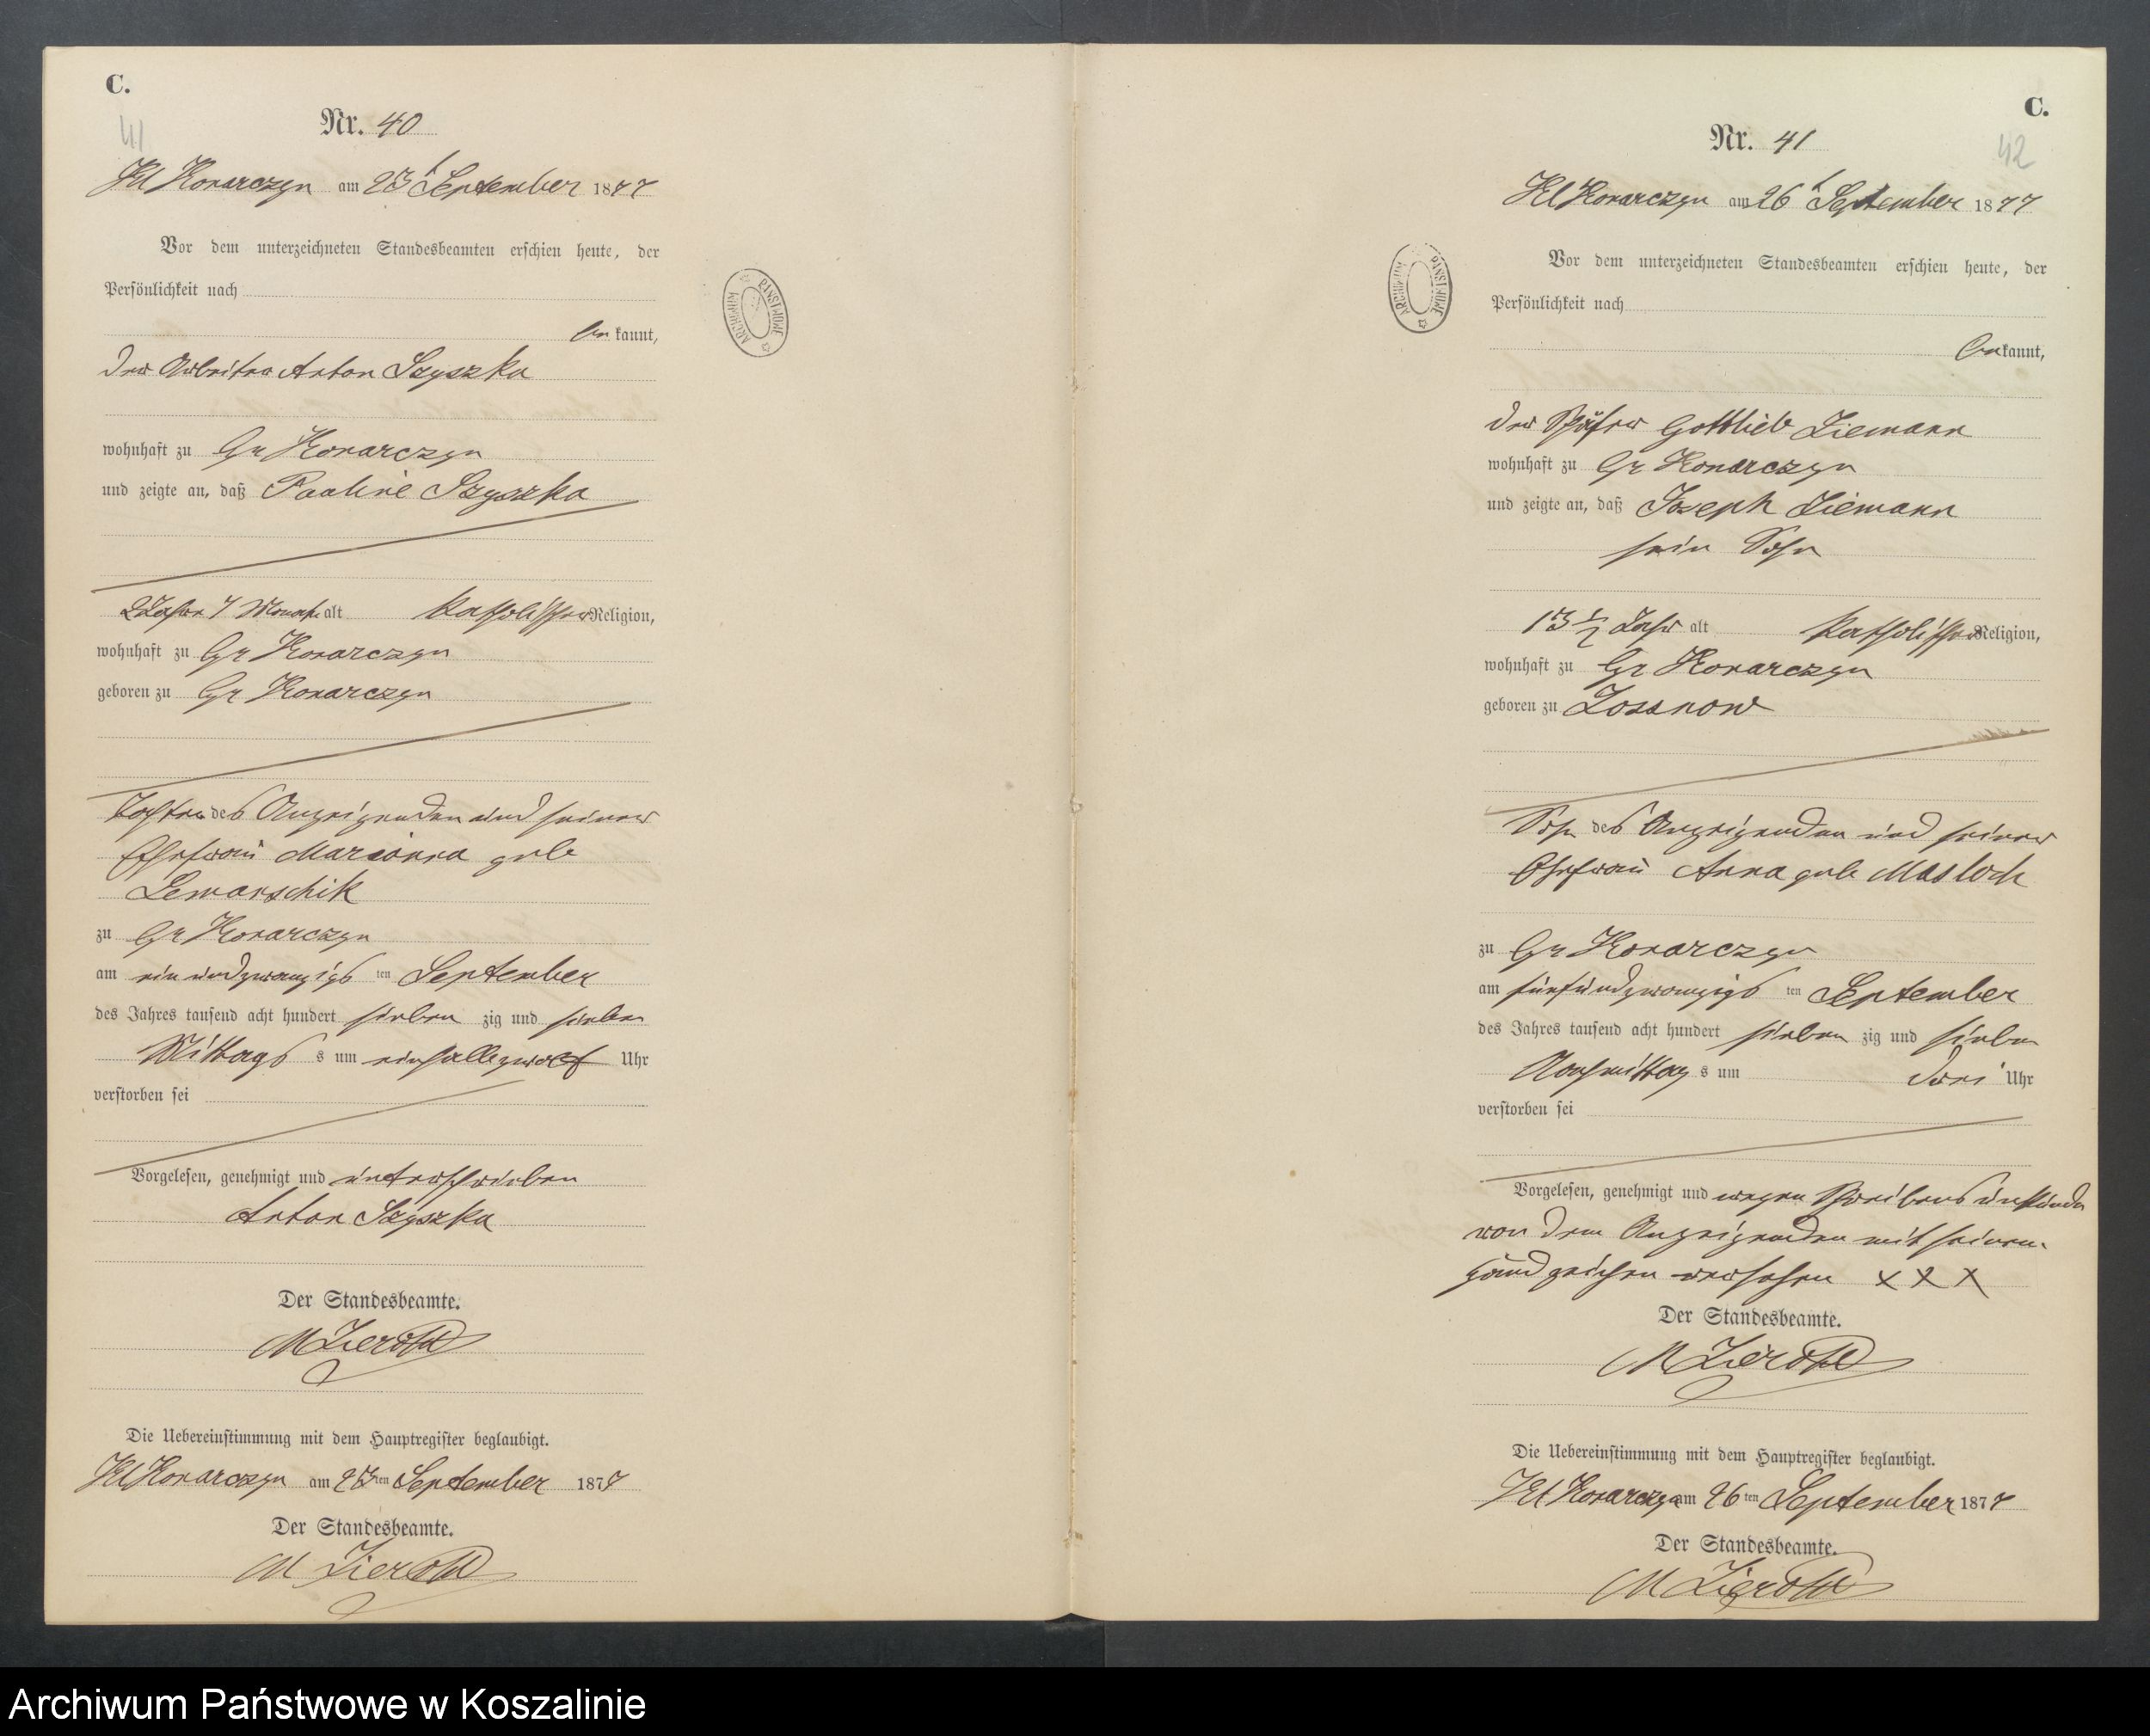 C.
41
Nr. 40
Kl Konarczyn am 23t September 1877
Vor dem unterzeichneten Standesbeamten erschien heute, der
Persönlichkeit nach
bekannt,
der Arbeiter Anton Szyszka
wohnhaft zu Gr Konarczyn
und zeigte an, daß Pauline Szyszka
2 Jahre 7 Monate alt katholischer Religion,
wohnhaft zu Gr Konarczyn
geboren zu Gr Konarczyn
Tochter des Anzeigenden und seiner
Ehefrau Marianna geb
Lemanschik
zu Gr Konarczyn
am ein und zwanzigsten September
des Jahres tausend acht hundert sieben zig und sieben
Mittags s um einhalbzwölf Uhr
verstorben sei
Vorgelesen, genehmigt und unterschrieben
Anton Szyszka
Der Standesbeamte.
M Zieroth
Die Uebereinstimmung mit dem Hauptregister beglaubigt.
Kl Konarczyn am 23ten September 1877
Der Standesbeamte.
M Zieroth
ARCHIWUM PAŃSTWOWE
C.
42
Nr. 41
Kl Konarczyn am 26t September 1877
Vor dem unterzeichneten Standesbeamten erschien heute, der
Persönlichkeit nach
bekannt,
der Schäfer Gottlieb Ziemann
wohnhaft zu Gr Konarczyn
und zeigte an, daß Joseph Ziemann
sein Sohn
13 1/2 Jahr alt katholischer Religion,
wohnhaft zu Gr Konarczyn
geboren zu Lossnow
Sohn des Anzeigenden und seiner
Ehefrau Anna geb Masloch
zu Gr Konarczyn
am fünfundzwanzigsten September
des Jahres tausend acht hundert sieben zig und sieben
Nachmittag s um drei Uhr
verstorben sei
Vorgelesen, genehmigt und wegen Schreibensunkunde
von dem Anzeigenden mit seinem
Handzeichen versehen X X X
Der Standesbeamte.
M Zieroth
Die Uebereinstimmung mit dem Hauptregister beglaubigt.
Kl Konarczyn am 26ten September 1877
Der Standesbeamte.
M Zieroth
ARCHIWUM PAŃSTWOWE
Archiwum Państwowe w Koszalinie